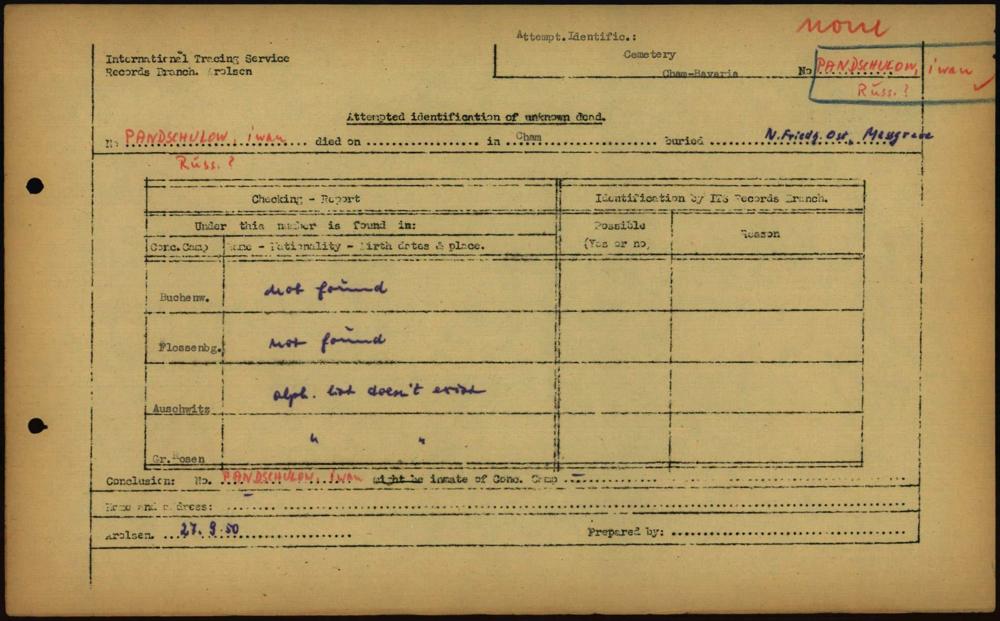 none
Attempt. Identific.:
International Tracing Service
Cemetery
Records Branch. Arolsen
Cham-Bavaria
No PANDSCHULOW, iwan
Russ. ?
Attempted identification of unknown dead.
No PANDSCHULOW, iwan died on in Cham buried N. Friedg. Ost, Massgrave
Russ. ?
Checking - Report
Identification by ITS Records Branch.
Under this number is found in:
Possible (Yes or no)
Reason
Conc. Camp
Name - Nationality - Birth dates & place.
Buchenw. not found
Flossenbg. not found
Auschwitz alph. list doesn't exist
Gr. Rosen " "
Conclusion: No. PANDSCHULOW, iwan might be inmate of Conc. Camp -
Home and address: -
Arolsen. 27. 9. 50
Prepared by: